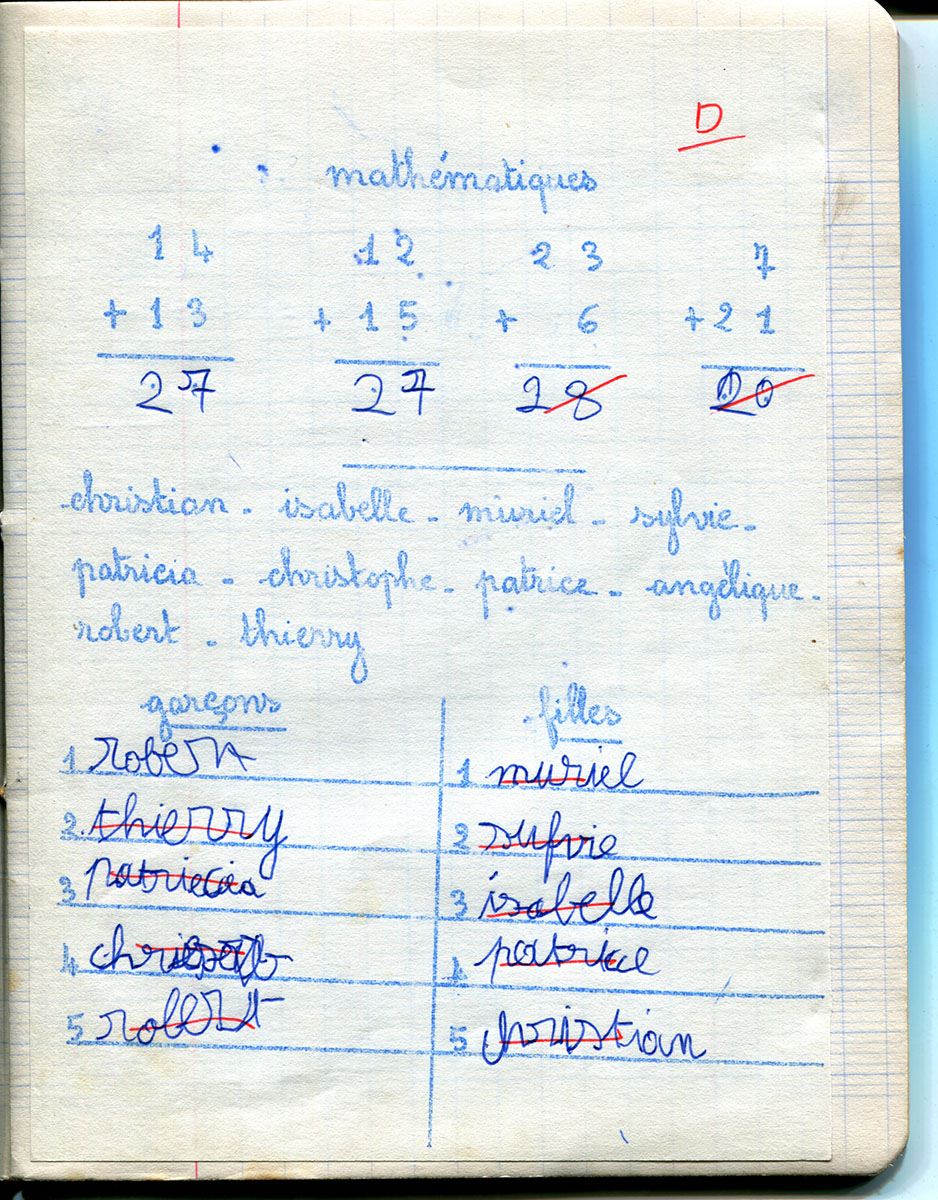 D
mathématiques
14 12 23 7
+ 13 + 15 + 6 + 21
27 27 28 20
christian - isabelle - muriel - sylvie -
patricia - christophe - patrice - angélique -
robert - thierry
garçons filles
1 robert 1 muriel
2 thierry 2 sylvie
3 3 isabelle
4 4 patrice
5 robert 5 christian